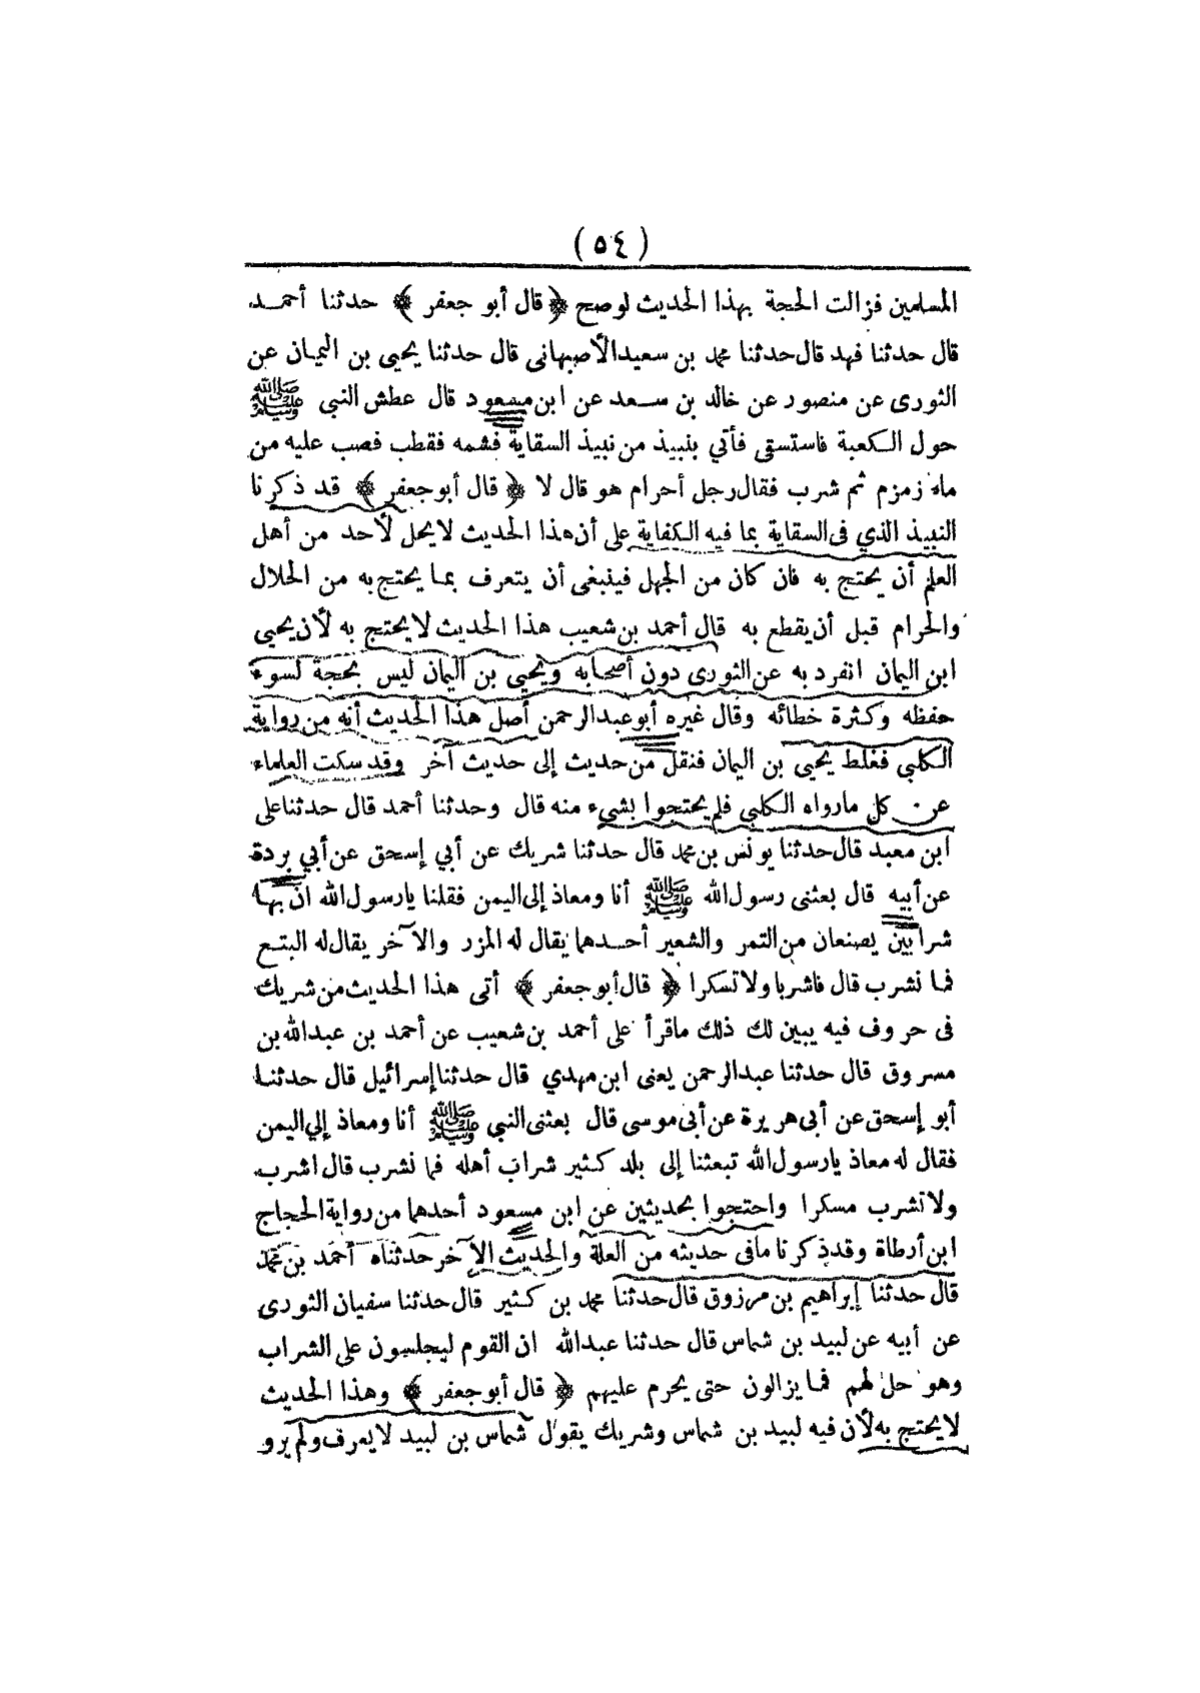 (٥٤)
المسلمين فزالت الحجة بهذا الحديث لو صح ﴿ قال أبو جعفر ﴾ حدثنا أحمد
قال حدثنا فهد قال حدثنا محمد بن سعيد الأصبهانى قال حدثنا يحيى بن اليمان عن
الثورى عن منصور عن خالد بن سعد عن ابن مسعود قال عطش النبي ﷺ
حول الكعبة فاستسقى فأتي بنبيذ من نبيذ السقاية فشمه فقطب فصب عليه من
ماء زمزم ثم شرب فقال رجل أحرام هو قال لا ﴿ قال أبو جعفر ﴾ قد ذكرنا
النبيذ الذي فى السقاية بما فيه الكفاية على أن هذا الحديث لا يحل لأحد من أهل
العلم أن يحتج به فان كان من الجهل فينبغى أن يتعرف بما يحتج به من الحلال
والحرام قبل أن يقطع به قال أحمد بن شعيب هذا الحديث لا يحتج به لأن يحيي
ابن اليمان انفرد به عن الثورى دون أصحابه ويحيى بن اليمان ليس بحجة لسوء
حفظه وكثرة خطائه وقال غيره أبو عبد الرحمن أصل هذا الحديث أنه من رواية
الكلبي فغلط يحيى بن اليمان فنقل من حديث إلى حديث آخر وقد سكت العلماء
عن كل مارواه الكلبي فلم يحتجوا بشيء منه قال وحدثنا أحمد قال حدثنا على
ابن معبد قال حدثنا يونس بن محمد قال حدثنا شريك عن أبي إسحق عن أبي بردة
عن أبيه قال بعثنى رسول الله ﷺ أنا ومعاذ إلى اليمن فقلنا يارسول الله ان بها
شرابين يصنعان من التمر والشعير أحدهما يقال له المزر والآخر يقال له البتع
فما نشرب قال فاشربا ولا تسكرا ﴿ قال أبو جعفر ﴾ أتى هذا الحديث من شريك
فى حروف فيه يبين لك ذلك ماقرأ على أحمد بن شعيب عن أحمد بن عبد الله بن
مسروق قال حدثنا عبد الرحمن يعنى ابن مهدي قال حدثنا إسرائيل قال حدثنا
أبو إسحق عن أبى هريرة عن أبى موسى قال بعثنى النبي ﷺ أنا ومعاذ إلي اليمن
فقال له معاذ يارسول الله تبعثنا إلى بلد كثير شراب أهله فما نشرب قال اشرب
ولا تشرب مسكرا واحتجوا بحديثين عن ابن مسعود أحدهما من رواية الحجاج
ابن أرطاة وقد ذكرنا مافى حديثه من العلة والحديث الآخر حدثناه أحمد بن محمد
قال حدثنا إبراهيم بن مرزوق قال حدثنا محمد بن كثير قال حدثنا سفيان الثورى
عن أبيه عن لبيد بن شماس قال حدثنا عبد الله ان القوم ليجلسون على الشراب
وهو حل لهم فما يزالون حتى يحرم عليهم ﴿ قال أبو جعفر ﴾ وهذا الحديث
لا يحتج به لأن فيه لبيد بن شماس وشريك يقول شماس بن لبيد لا يعرف ولم يرو